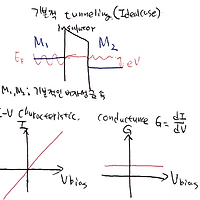 기본적 tunneling (Ideal case)
Insulator
M₁ M₂
E_F eV
M₁, M₂ : 기본적인 비자성금속
I-V Characteristic. conductance G = dI/dV
I G
V bias V bias